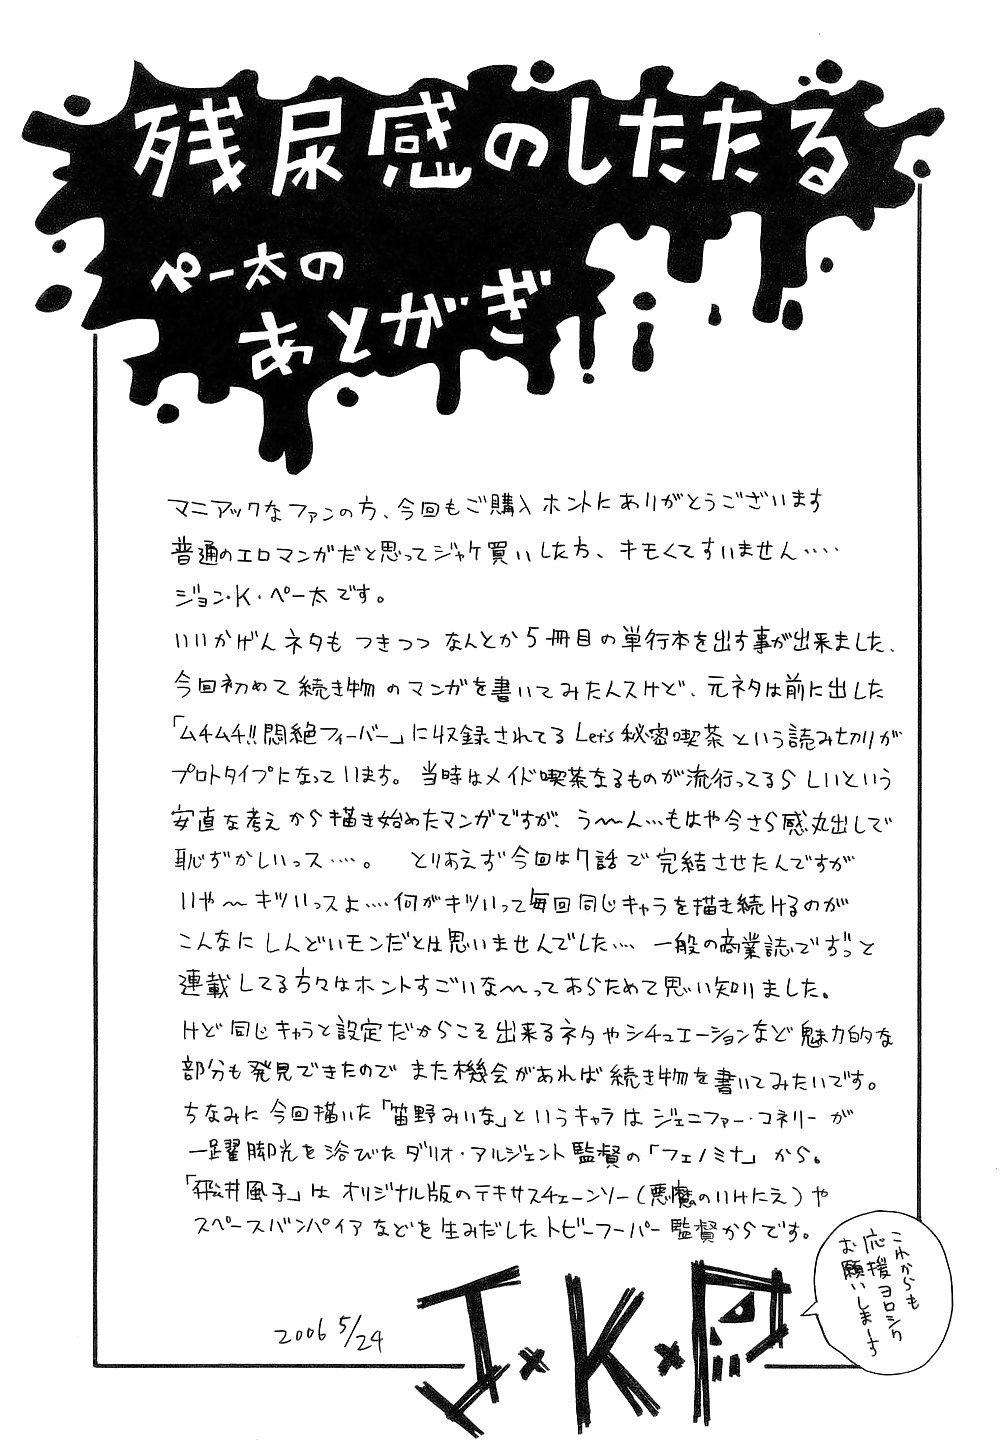 残尿感のしたたる
ペー太の
あとがき
マニアックなファンの方、今回もご購入ホントにありがとうございます
普通のエロマンガだと思ってジャケ買いした方、キモくてすいません‥‥
ジョン・K・ペー太です。
いいかげんネタもつきつつなんとか5冊目の単行本を出す事が出来ました、
今回初めて続き物のマンガを書いてみたんスけど、元ネタは前に出した
「ムチムチ!!悶絶フィーバー」に収録されてるLet's秘密喫茶という読み切りが
プロトタイプになっています。当時はメイド喫茶なるものが流行ってるらしいという
安直な考えから描き始めたマンガですが、う〜ん…もはや今さら感丸出しで
恥ずかしいっス‥‥。とりあえず今回は7話で完結させたんですが
いや〜キツいっスよ‥‥何がキツいって毎回同じキャラを描き続けるのが
こんなにしんどいモンだとは思いませんでした…一般の商業誌でずっと
連載してる方々はホントすごいな〜ってあらためて思い知りました。
けど同じキャラと設定だからこそ出来るネタやシチュエーションなど魅力的な
部分も発見できたのでまた機会があれば続き物を書いてみたいです。
ちなみに今回描いた「笛野みいな」というキャラはジェニファー・コネリーが
一躍脚光を浴びたダリオ・アルジェント監督の「フェノミナ」から。
「飛井風子」はオリジナル版のテキサスチェーンソー(悪魔のいけにえ)や
スペースバンパイアなどを生みだしたトビーフーパー監督からです。
2006 5/24
J×K×P
これからも
応援ヨロシク
お願いしまーす